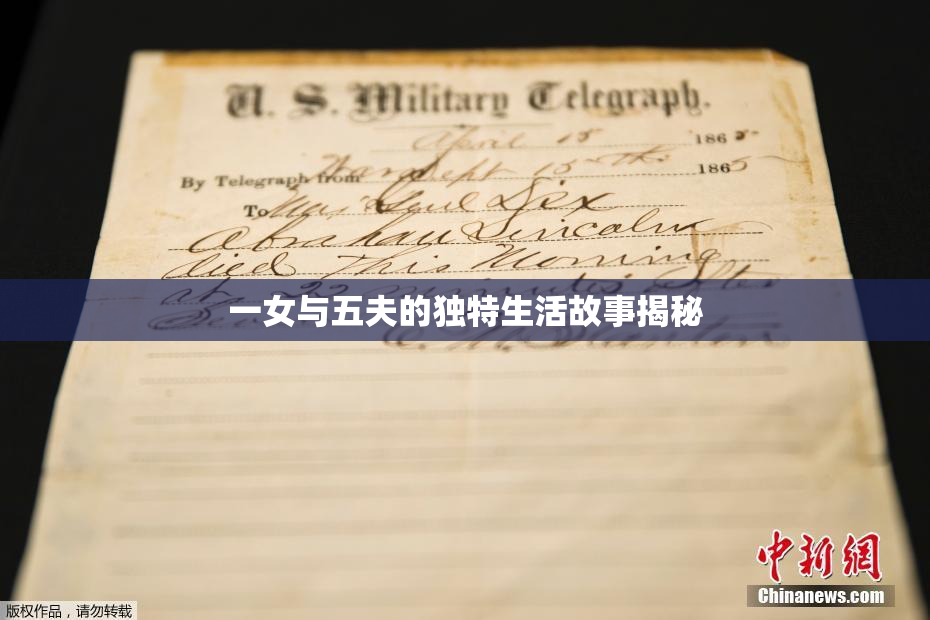 U. S. Military Telegraph.
April 15 1865-
By Telegraph from War Dept 15th 1865
To Maj Genl Dix
Abraham Lincoln
died This Morning
at 22 minutes After
一女与五夫的独特生活故事揭秘
Seven
E. M. Stanton
中新網
Chinanews.com
版权作品，请勿转载